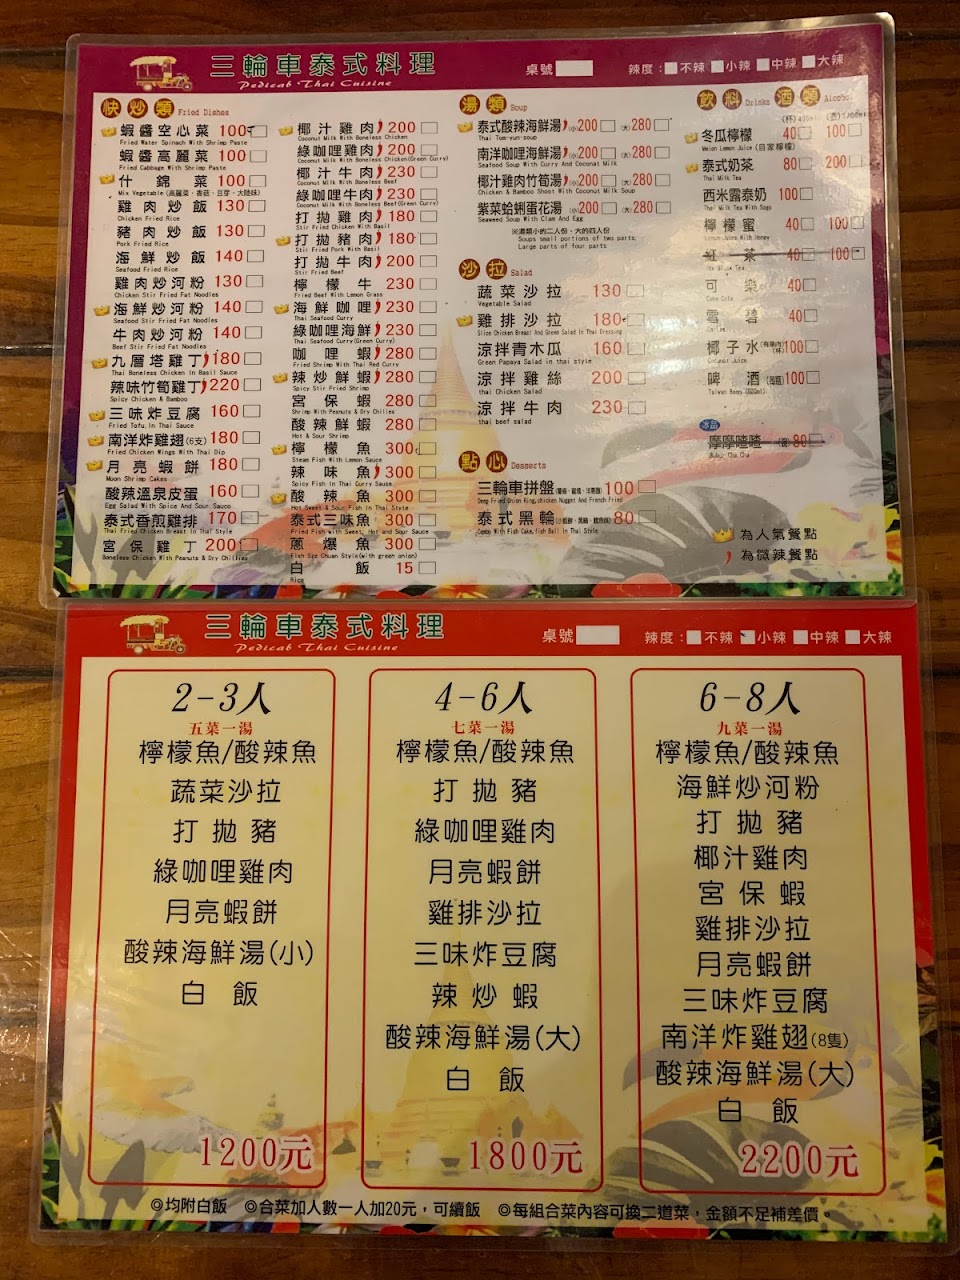 三輪車泰式料理
Pedicab Thai Cuisine
桌號
辣度：不辣 小辣 中辣 大辣
快炒類 Fried Dishes
蝦醬空心菜 100
Fried Water Spinach With Shrimp Paste
蝦醬高麗菜 100
Fried Cabbage With Shrimp Paste
什錦菜 100
Mix Vegetable(高麗菜、香菇、豆芽、大陸妹)
雞肉炒飯 130
Chicken Fried Rice
豬肉炒飯 130
Pork Fried Rice
海鮮炒飯 140
Seafood Fried Rice
雞肉炒河粉 130
Chicken Stir Fried Fat Noodles
海鮮炒河粉 140
Seafood Stir Fried Fat Noodles
牛肉炒河粉 140
Beef Stir Fried Fat Noodles
九層塔雞丁 180
Thai Boneless Chicken In Basil Sauce
辣味竹筍雞丁 220
Spicy Chicken & Bamboo
三味炸豆腐 160
Fried Tofu In Thai Sauce
南洋炸雞翅(6支) 180
Fried Chicken Wings With Thai Dip
月亮蝦餅 180
Moon Shrimp Cakes
酸辣溫泉皮蛋 160
Egg Salad With Spice And Sour Sauce
泰式香煎雞排 170
Thai Fried Chicken Breast In Thai Style
宮保雞丁 200
Boneless Chicken With Peanuts & Dry Chillies
椰汁雞肉 200
Coconut Milk With Boneless Chicken
綠咖哩雞肉 200
Coconut Milk With Boneless Chicken(Green Curry)
椰汁牛肉 230
Coconut Milk With Boneless Beef
綠咖哩牛肉 230
Coconut Milk With Boneless Beef(Green Curry)
打拋雞肉 180
Stir Fried Chicken With Basil
打拋豬肉 180
Stir Fried Pork With Basil
打拋牛肉 200
Stir Fried Beef
檸檬牛 230
Fried Beef With Lemon Grass
海鮮咖哩 230
Thai Seafood Curry
綠咖哩海鮮 230
Thai Seafood Curry(Green Curry)
咖哩蝦 280
Fried Shrimp With Thai Red Curry
辣炒鮮蝦 280
Spicy Stir Fried Shrimp
宮保蝦 280
Shrimp With Peanuts & Dry Chilies
酸辣鮮蝦 280
Hot & Sour Shrimp
檸檬魚 300
Steam Fish With Lemon Sauce
辣味魚 300
Spicy Fish In Thai Curry Sauce
酸辣魚 300
Hot Sweet & Sour Fish In Thai Style
泰式三味魚 300
Fried Fish With Sweet, Hot and Sour Sauce
蔥爆魚 300
Fish Sze Chuan Style(with green onion)
白飯 15
Rice
湯類 Soup
泰式酸辣海鮮湯 (小)200 (大)280
Thai Tom-yun-soup
南洋咖哩海鮮湯 (小)200 (大)280
Seafood Soup With Curry And Coconut Milk
椰汁雞肉竹筍湯 (小)200 (大)280
Chicken & Bamboo Shoot With Coconut Milk Soup
紫菜蛤蜊蛋花湯 (小)200 (大)280
Seaweed Soup With Clam And Egg
※湯類小的二人份、大的四人份
Soups small portions of two parts.
Large parts of four parts
沙拉 Salad
蔬菜沙拉 130
Vegetable Salad
雞排沙拉 180
Slice Chicken Breast And Green Salad In Thai Dressing
涼拌青木瓜 160
Green Papaya Salad in thai style
涼拌雞絲 200
thai Chicken Salad
涼拌牛肉 230
thai beef salad
點心 Desserts
三輪車拼盤 100
Deep Fried Onion Ring,chicken Nugget And French Fried
泰式黑輪 80
Combo With Fish Cake,fish Ball In Thai Style
飲料 Drinks 酒類 Alcohol
冬瓜檸檬 40 100
Melon Lemon Juice (自家檸檬)
泰式奶茶 80 200
Thai Milk Tea
西米露泰奶 100
Thai Milk Tea With Sago
檸檬蜜 40 100
Lemon Juice With Honey
紅茶 40 100
Ice Black Tea
可樂 40
Coca Cola
雪碧 40
椰子水 100
Coconut Juice
啤酒 100
Taiwan Beer (600ml)
冰品
摩摩喳喳 80
為人氣餐點
為微辣餐點
三輪車泰式料理
Pedicab Thai Cuisine
桌號
辣度：不辣 小辣 中辣 大辣
2-3人
五菜一湯
檸檬魚/酸辣魚
蔬菜沙拉
打拋豬
綠咖哩雞肉
月亮蝦餅
酸辣海鮮湯(小)
白飯
1200元
4-6人
七菜一湯
檸檬魚/酸辣魚
打拋豬
綠咖哩雞肉
月亮蝦餅
雞排沙拉
三味炸豆腐
辣炒蝦
酸辣海鮮湯(大)
白飯
1800元
6-8人
九菜一湯
檸檬魚/酸辣魚
海鮮炒河粉
打拋豬
椰汁雞肉
宮保蝦
雞排沙拉
月亮蝦餅
三味炸豆腐
南洋炸雞翅(8隻)
酸辣海鮮湯(大)
白飯
2200元
◎均附白飯 ◎合菜加人數一人加20元，可續飯 ◎每組合菜內容可換二道菜，金額不足補差價。